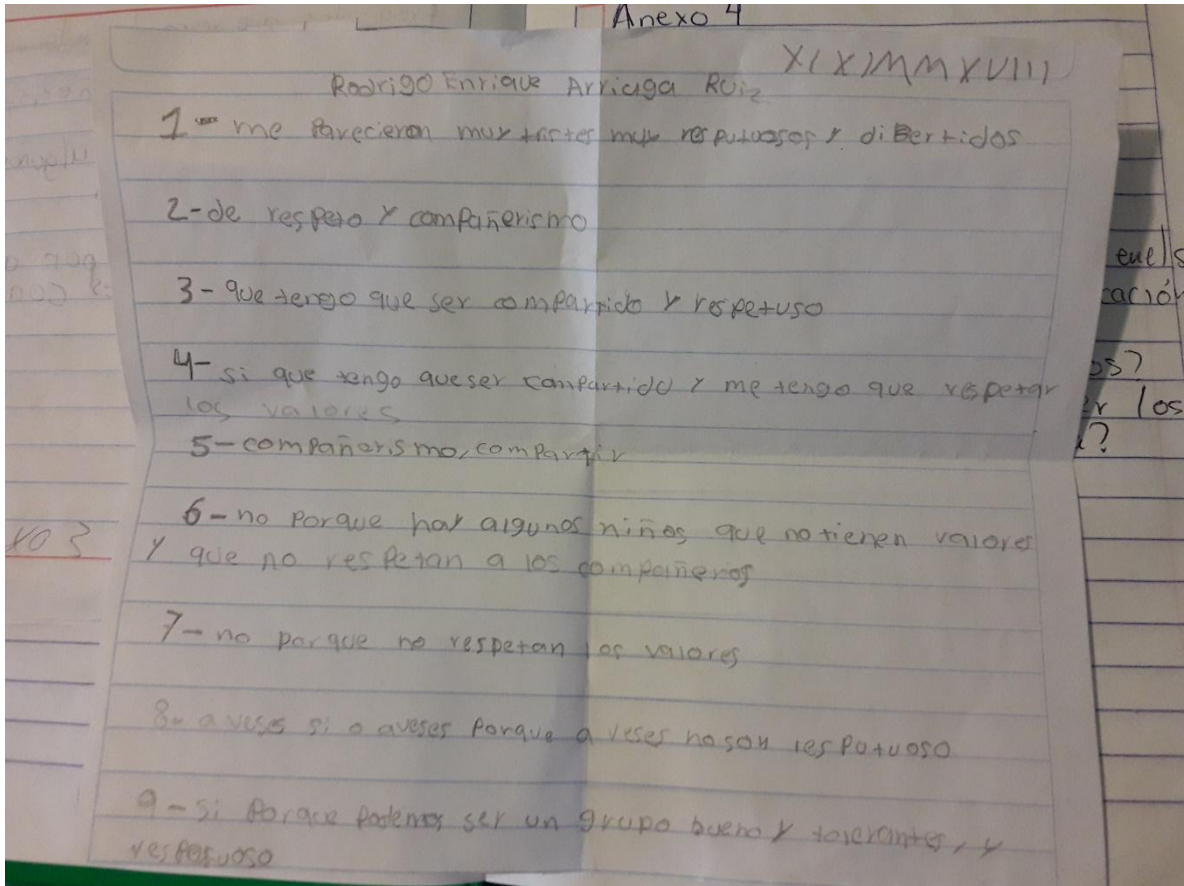 Anexo 4
XI XI MMXVIII
Rodrigo Enrique Arriaga Ruiz
1- me Parecieron muy tristes muy resputuosos y diBertidos
2-de respeto y compañerismo
3- que tengo que ser compartido y respetuso
4- si que tengo que ser compartido y me tengo que respetar
los valores
5- compañerismo, compartir
6- no porque hay algunos niños que no tienen valores
y que no respetan a los compañeros
7- no porque no respetan los valores
8- a veses si o aveses Porque a veses no son resPotuoso
9- si Porque Podemos ser un grupo bueno y tolerantes, y
resPetuoso
xo 3
cación
os?
er los